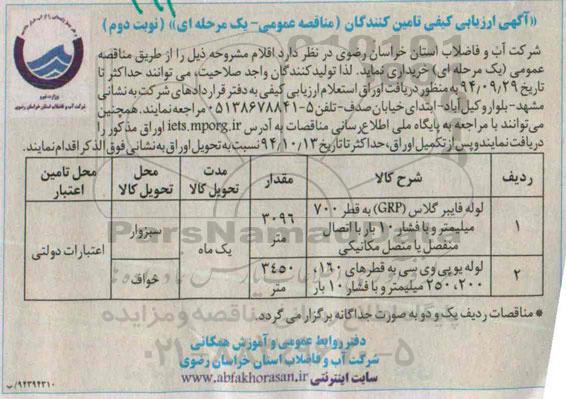 «آگهی ارزیابی کیفی تامین کنندگان (مناقصه عمومی- یک مرحله ای)» (نوبت دوم)
شرکت آب و فاضلاب استان خراسان رضوی در نظر دارد اقلام مشروحه ذیل را از طریق مناقصه
عمومی (یک مرحله ای) خریداری نماید. لذا تولیدکنندگان واجد صلاحیت، می توانند حداکثر تا
تاریخ ۹۴/۰۹/۲۹ به منظور دریافت اوراق استعلام ارزیابی کیفی به دفتر قراردادهای شرکت به نشانی
مشهد- بلوار وکیل آباد- ابتدای خیابان صدف- تلفن ۵-۰۵۱۳۸۶۷۸۸۴۱ مراجعه نمایند. همچنین
می توانند با مراجعه به پایگاه ملی اطلاع رسانی مناقصات به آدرس iets.mporg.ir اوراق مذکور را
دریافت نمایند و پس از تکمیل اوراق، حداکثر تا تاریخ ۹۴/۱۰/۱۳ نسبت به تحویل اوراق به نشانی فوق الذکر اقدام نمایند.
وزارت نیرو
شرکت آب و فاضلاب استان خراسان رضوی
ردیف شرح کالا مقدار مدت تحویل کالا محل تحویل کالا محل تامین اعتبار
۱ لوله فایبر گلاس (GRP) به قطر ۷۰۰ ۳۰۹۶ سبزوار
میلیمتر و با فشار ۱۰ بار با اتصال متر
منفصل یا متصل مکانیکی یک ماه اعتبارات دولتی
۲ لوله یو پی وی سی به قطرهای ۱۶۰، ۳۴۵۰ خواف
۲۰۰، ۲۵۰ میلیمتر و با فشار ۱۰ بار متر
* مناقصات ردیف یک و دو به صورت جداگانه برگزار می گردد.
دفتر روابط عمومی و آموزش همگانی
شرکت آب و فاضلاب استان خراسان رضوی
سایت اینترنتی www.abfakhorasan.ir
۹۴۳۹۴۳۱۰/ب